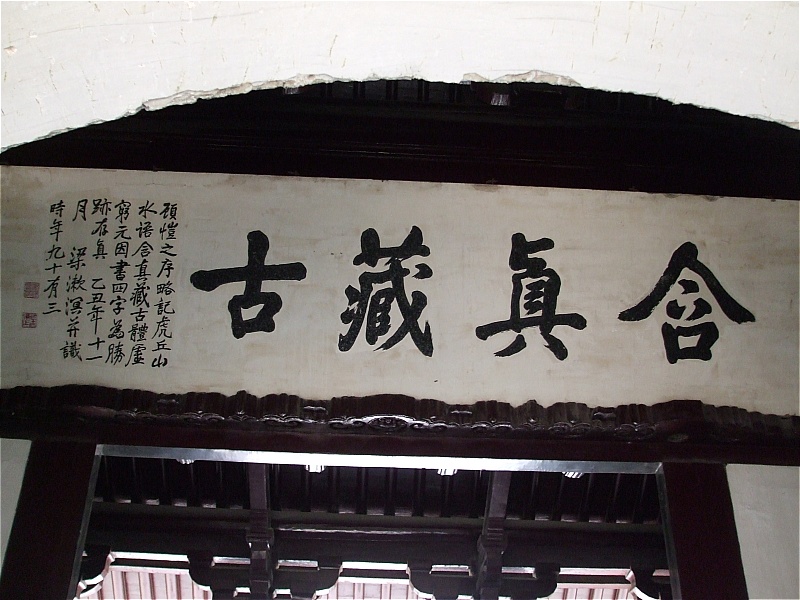 含真藏古
顾愷之序略記虎丘山
水语含真藏古體虛
窮元因書四字为勝
跡存真 乙丑年十一
月 梁漱溟并識
時年九十有三